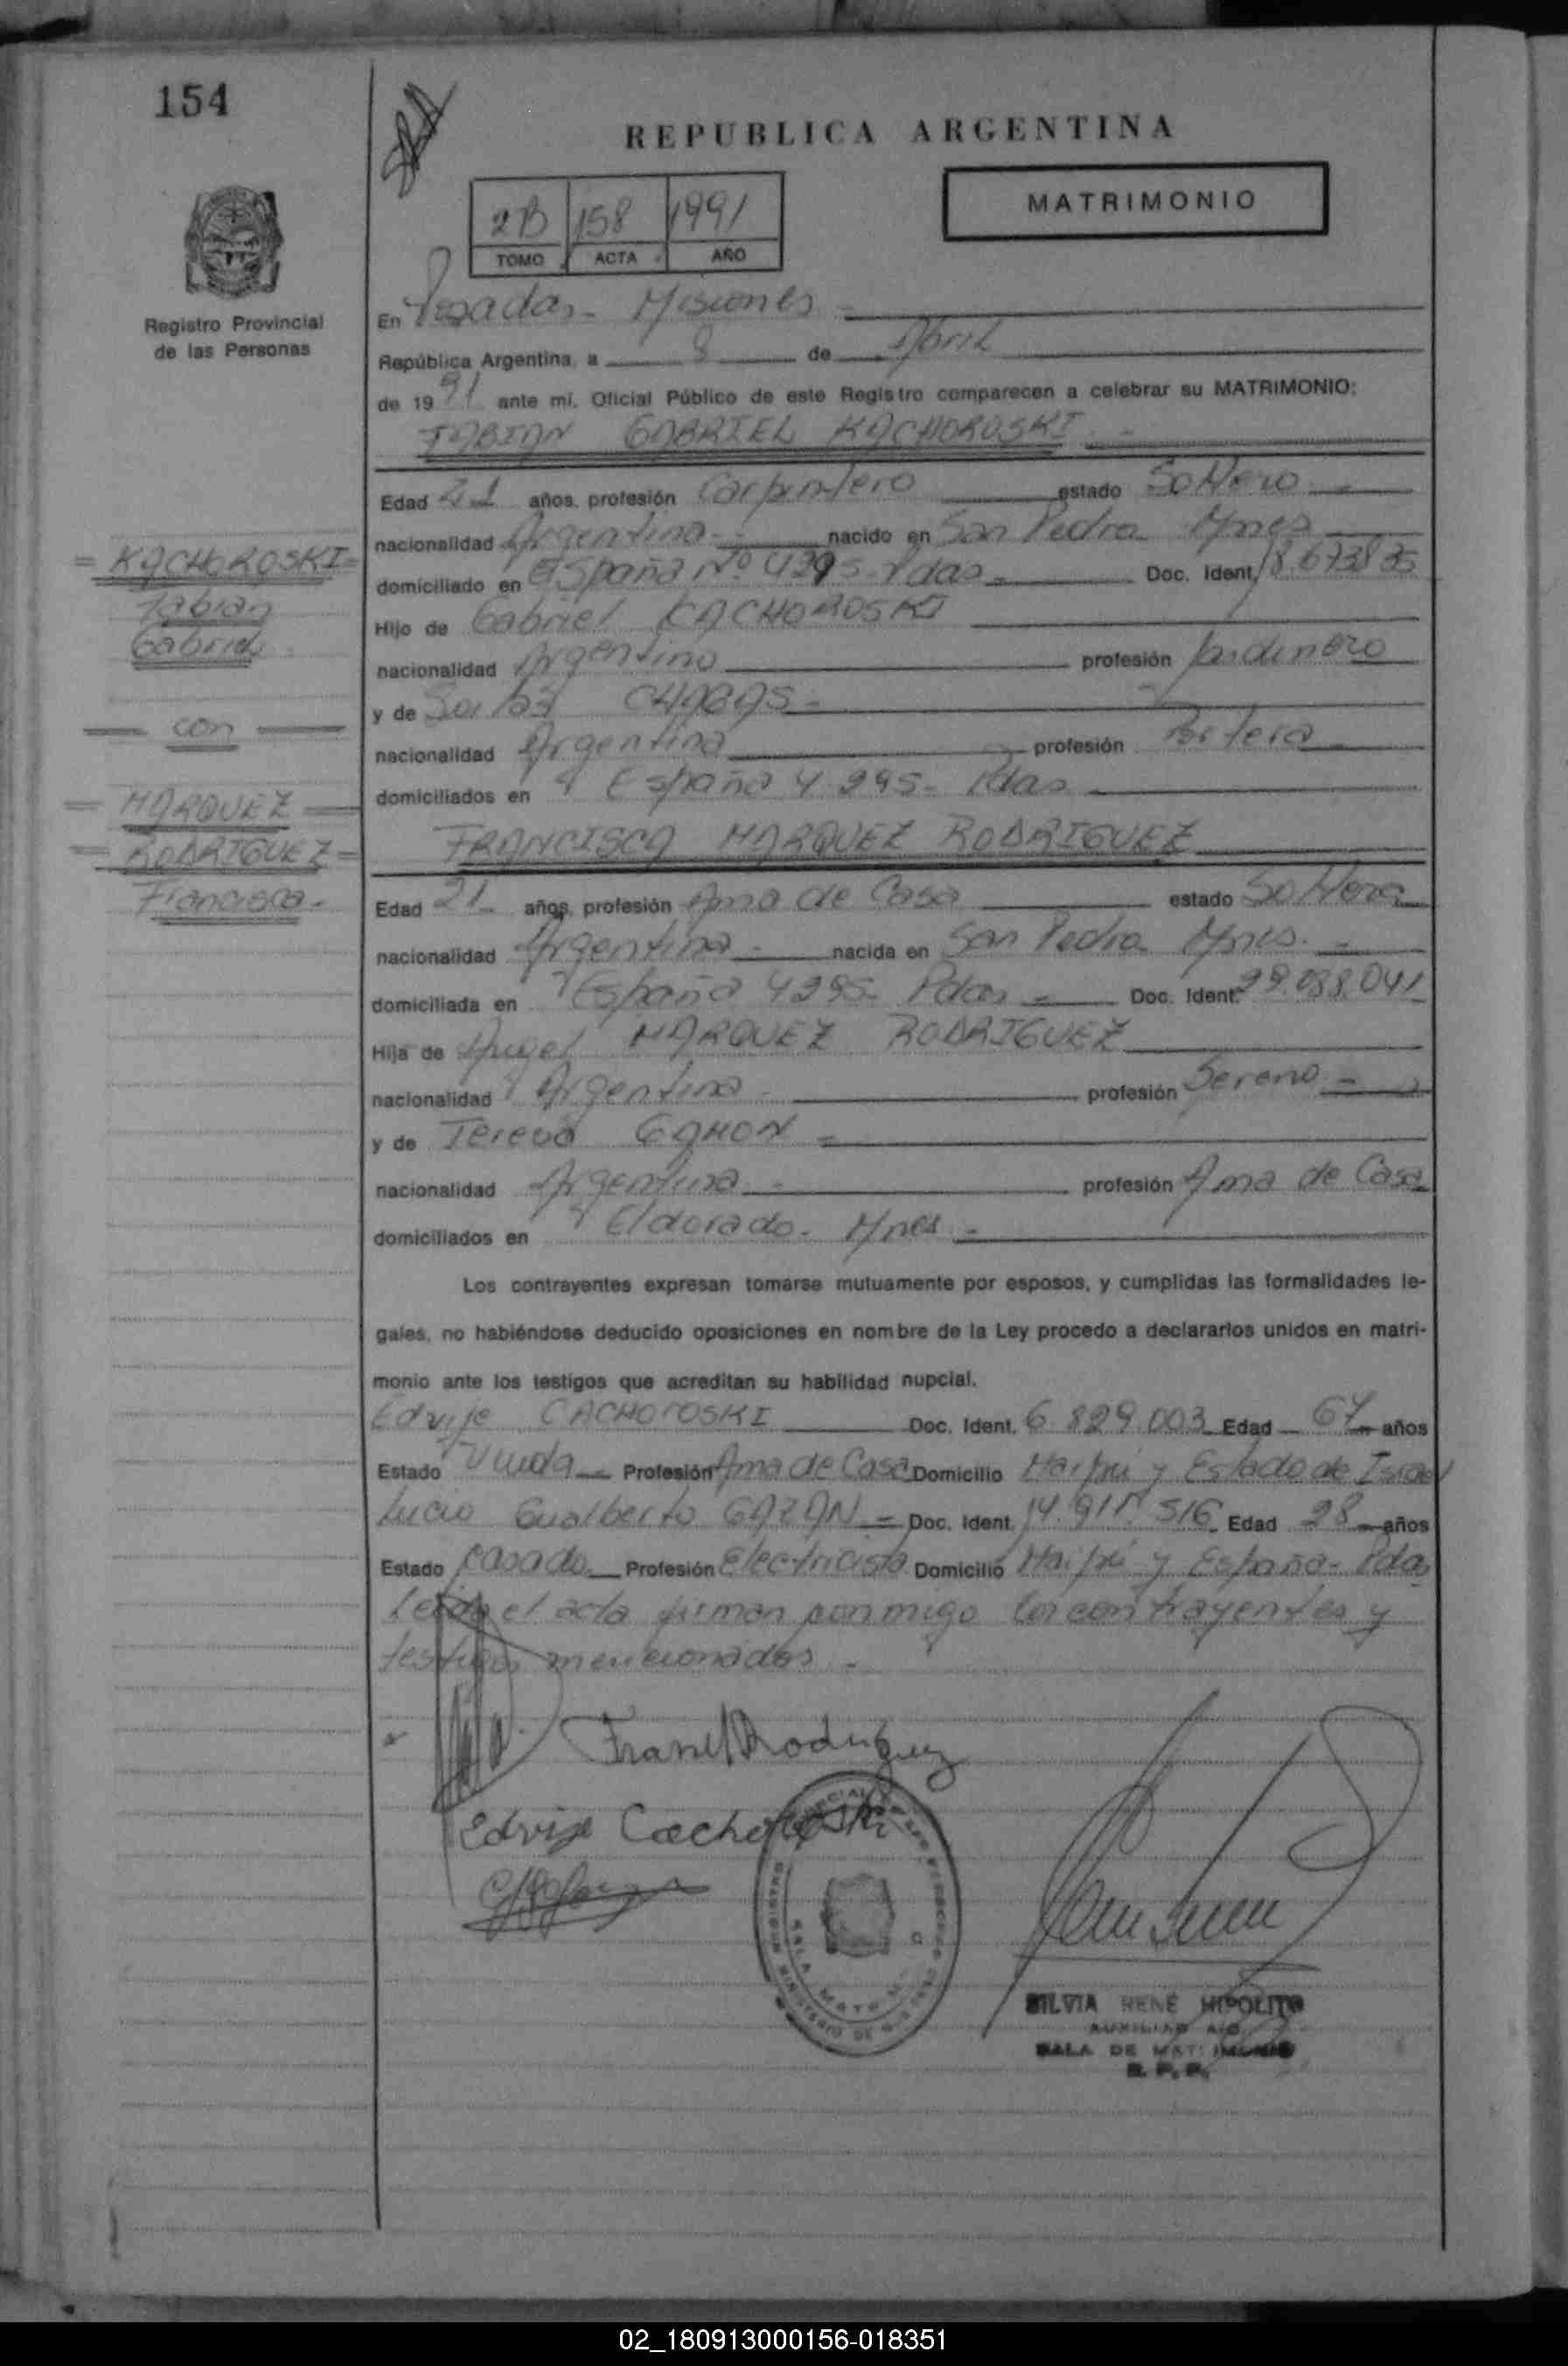 154
REPUBLICA ARGENTINA
MATRIMONIO
2B 158 1991
TOMO ACTA AÑO
Registro Provincial
de las Personas
En Posadas - Misiones
República Argentina, a 8 de Abril
de 1991 ante mí, Oficial Público de este Registro comparecen a celebrar su MATRIMONIO:
FABIAN GABRIEL KACHOROSKI
Edad 21 años, profesión Carpintero estado Soltero
nacionalidad Argentina nacido en San Pedro Mnes
= KACHOROSKI =
Fabian
Gabriel
domiciliado en España Nº 4295 - Pdas Doc. Ident. 18.673.835
Hijo de Gabriel KACHOROSKI
nacionalidad Argentino profesión Jardinero
y de CHABAS
con
nacionalidad Argentina profesión Portera
domiciliados en España 4.295 - Pdas
= MARQUEZ =
= RODRIGUEZ =
Francisca -
FRANCISCA MARQUEZ RODRIGUEZ
Edad 21 años, profesión Ama de Casa estado Soltera
nacionalidad Argentina - nacida en San Pedro Mnes. -
domiciliada en España 4295 - Pdas - Doc. Ident. 29.088.041
Hija de Angel MARQUEZ RODRIGUEZ
nacionalidad Argentina - profesión Sereno -
y de Teresa GAMON
nacionalidad Argentina - profesión Ama de Casa
domiciliados en Eldorado - Mnes -
Los contrayentes expresan tomarse mutuamente por esposos, y cumplidas las formalidades le-
gales, no habiéndose deducido oposiciones en nombre de la Ley procedo a declararlos unidos en matri-
monio ante los testigos que acreditan su habilidad nupcial.
Edvije CACHOROSKI Doc. Ident. 6.829.003 Edad 64 años
Estado Viuda Profesión Ama de Casa Domicilio Maipú y Estado de Israel
Lucio Gualberto GAZAN = Doc. Ident. 14.911.516 Edad 28 años
Estado Casado Profesión Electricista Domicilio Maipú y España - Pdas
Leida el acta firman conmigo los contrayentes y
testigos mencionados -
Rodriguez
Edvije Cachoroski
SILVIA RENE HIPOLITO
SALA DE MATRIMONIO
R. P. P.
02_180913000156-018351